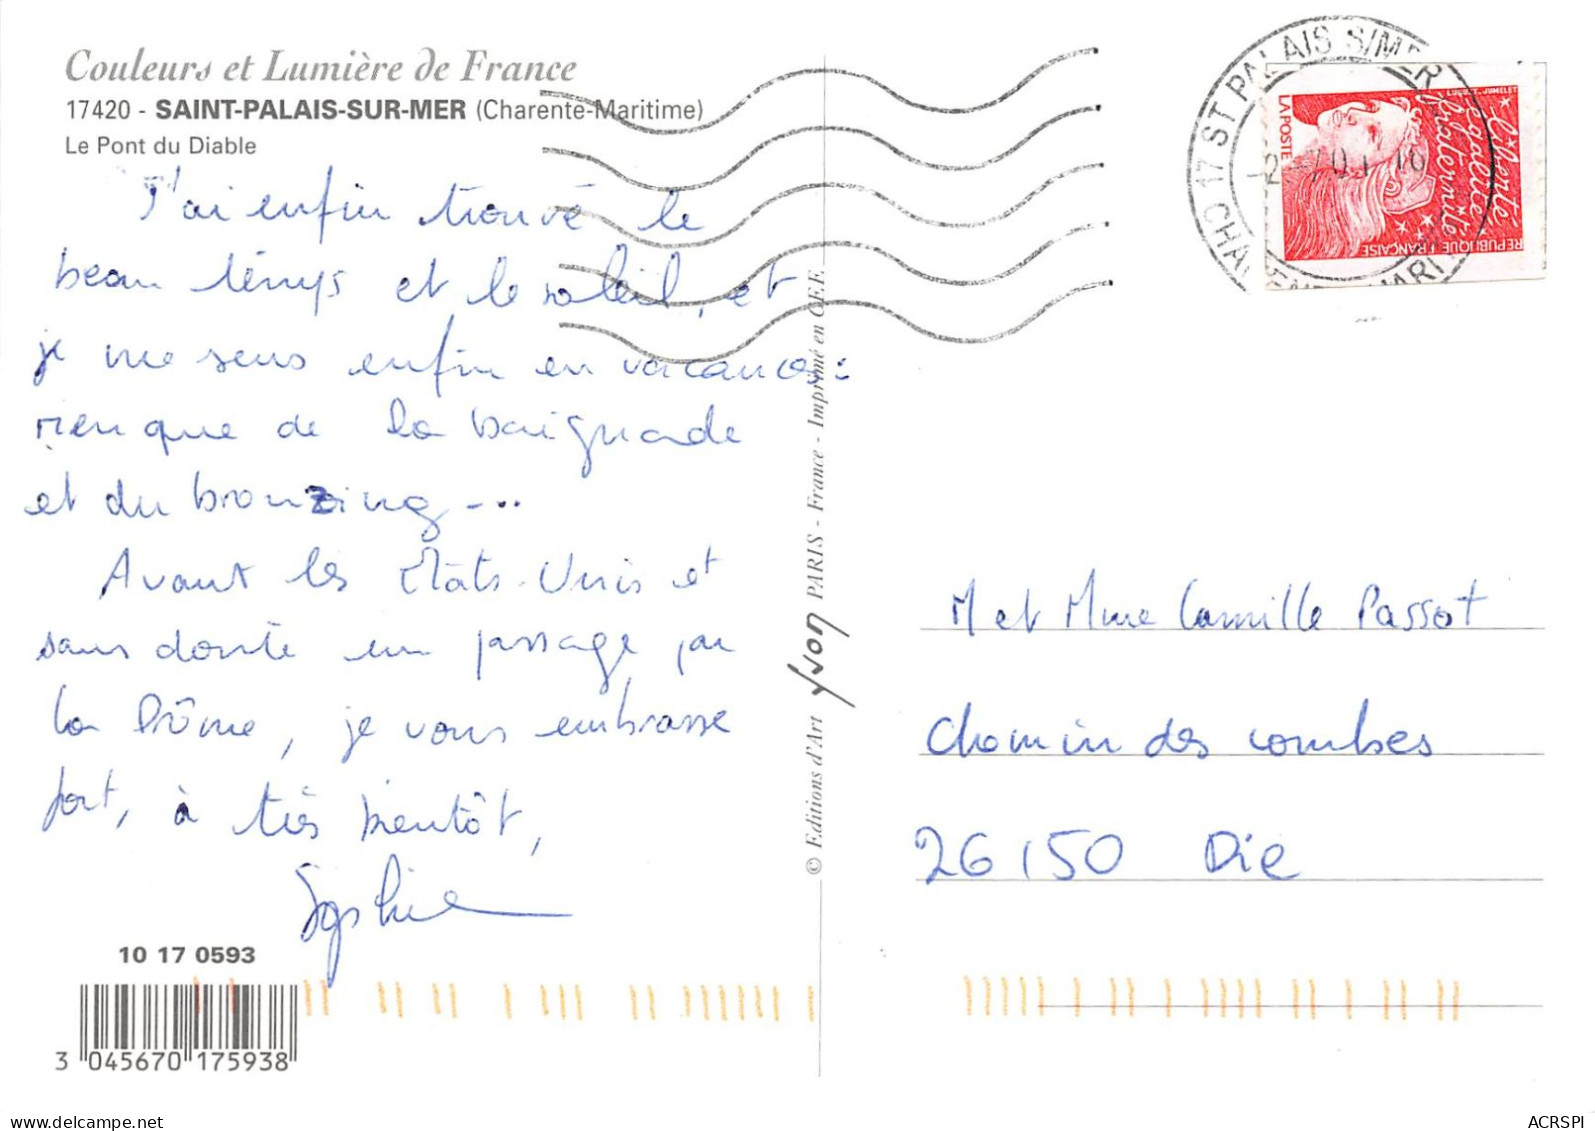 Couleurs et Lumière de France
17420 - SAINT-PALAIS-SUR-MER (Charente-Maritime)
Le Pont du Diable
J'ai enfin trouvé le
beau temps et le soleil, et
je me sens enfin en vacances :
rien que de la baignade
et du bronzing ...
Avant les Etats-Unis et
sans doute un passage par
la Drôme, je vous embrasse
fort, à très bientôt,
Sophie
10 17 0593
3 045670 175938
© Editions d'Art yvon PARIS - France - Imprimé en CEE
17 ST PALAIS S/MER
LA POSTE
Liberté
égalité
fraternité
RÉPUBLIQUE FRANÇAISE
M et Mme Camille Passot
Chemin des combes
26150 Die
delcampe.net
ACRSPI